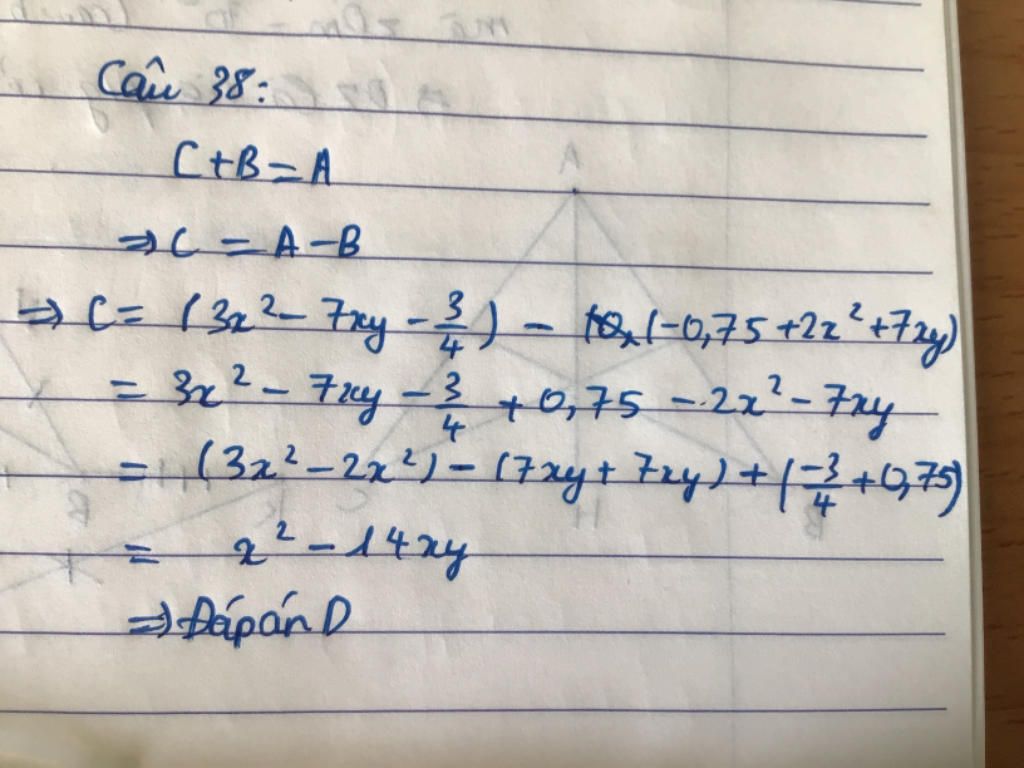 Câu 38:
C+B=A
⇒ C = A - B
⇒ C = (3x² - 7xy - 3/4) - (-0,75 + 2x² + 7xy)
= 3x² - 7xy - 3/4 + 0,75 - 2x² - 7xy
= (3x² - 2x²) - (7xy + 7xy) + (-3/4 + 0,75)
= x² - 14xy
⇒ Đáp án D